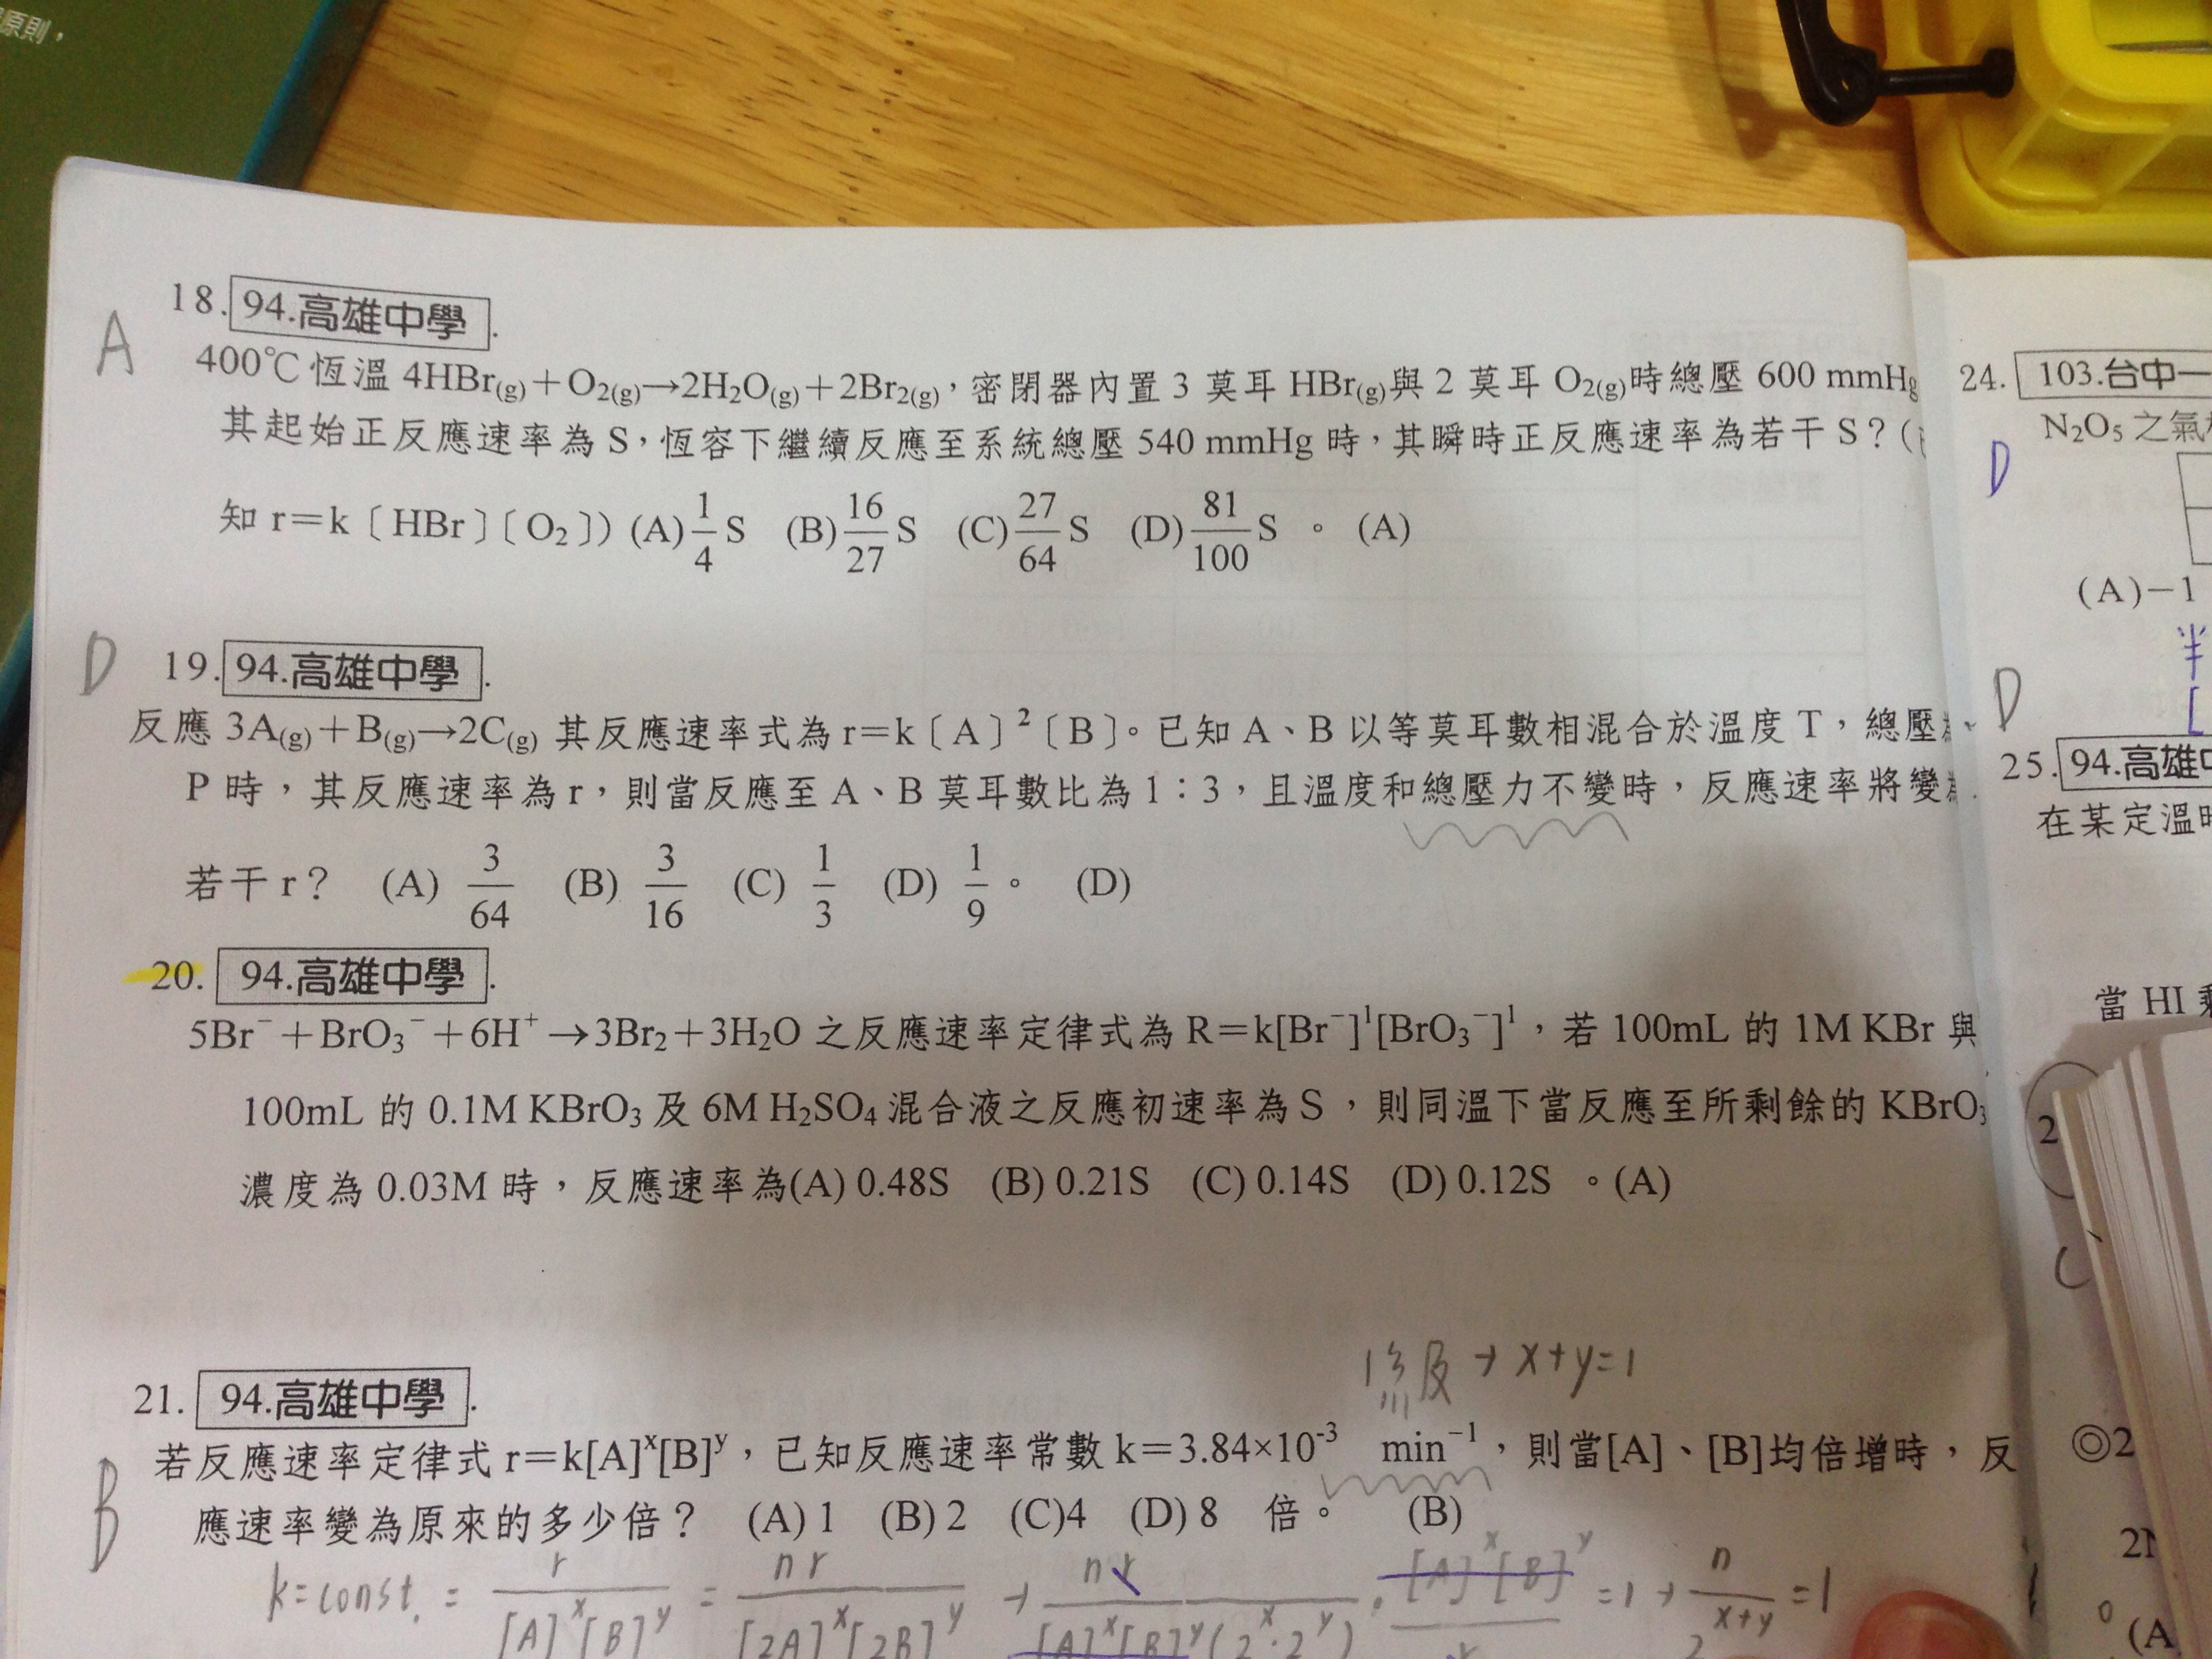 原則，
18. 94.高雄中學.
A
400℃恆溫 4HBr(g)＋O2(g)→2H2O(g)＋2Br2(g)，密閉器內置 3 莫耳 HBr(g)與 2 莫耳 O2(g)時總壓 600 mmHg
其起始正反應速率為 S，恆容下繼續反應至系統總壓 540 mmHg 時，其瞬時正反應速率為若干 S？(
知 r＝k〔HBr〕〔O2〕) (A) 1/4 S (B) 16/27 S (C) 27/64 S (D) 81/100 S 。 (A)
D
19. 94.高雄中學.
反應 3A(g)＋B(g)→2C(g) 其反應速率式為 r＝k〔A〕²〔B〕。已知 A、B 以等莫耳數相混合於溫度 T，總壓
P 時，其反應速率為 r，則當反應至 A、B 莫耳數比為 1：3，且溫度和總壓力不變時，反應速率將變
若干 r？ (A) 3/64 (B) 3/16 (C) 1/3 (D) 1/9 。 (D)
20. 94.高雄中學.
5Br⁻＋BrO3⁻＋6H⁺→3Br2＋3H2O 之反應速率定律式為 R＝k[Br⁻]¹[BrO3⁻]¹，若 100mL 的 1M KBr 與
100mL 的 0.1M KBrO3 及 6M H2SO4 混合液之反應初速率為 S，則同溫下當反應至所剩餘的 KBrO3
濃度為 0.03M 時，反應速率為(A) 0.48S (B) 0.21S (C) 0.14S (D) 0.12S 。(A)
1級反→x+y=1
21. 94.高雄中學.
B
若反應速率定律式 r＝k[A]ˣ[B]ʸ，已知反應速率常數 k＝3.84×10⁻³ min⁻¹，則當[A]、[B]均倍增時，反
應速率變為原來的多少倍？ (A) 1 (B) 2 (C)4 (D) 8 倍。 (B)
k=const. = r/[A]ˣ[B]ʸ = nr/[2A]ˣ[2B]ʸ → nr/[A]ˣ[B]ʸ(2ˣ·2ʸ) · [A]ˣ[B]ʸ/r =1 → n/2ˣ⁺ʸ =1
24. 103.台中一
N2O5 之氣
D
(A)－1
半
[
D
25. 94.高雄中
在某定溫時
當 HI 剩
2
C
◎2
2N
(A